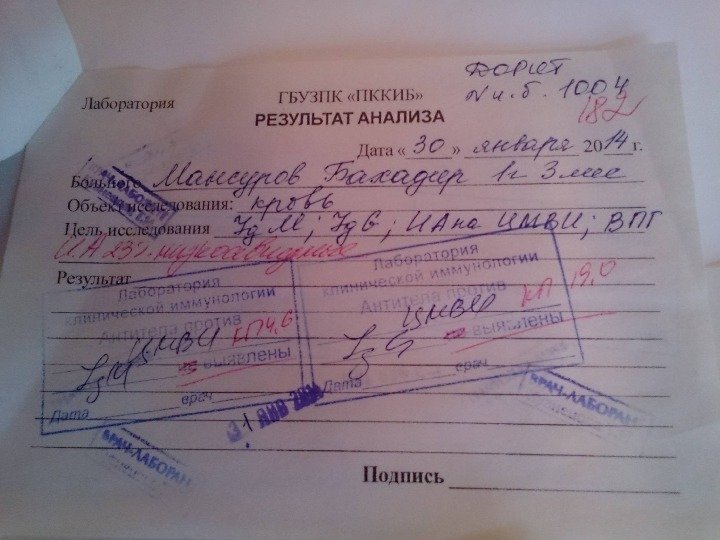 ДОРИТ
Лаборатория
ГБУЗПК «ПККИБ»
N и.б. 1004
182
РЕЗУЛЬТАТ АНАЛИЗА
Дата « 30 » января 2014г.
Больного Мансуров Бахадир 1г 3 мес
Объект исследования: кровь
Цель исследования IgM; IgG; ИА на ЦМВИ; ВПГ
ИА 23%
Результат
Лаборатория
клинической иммунологии
Антитела против
ЦМВИ КП 4,6
IgM выявлены
Дата врач
Лаборатория
клинической иммунологии
Антитела против
ЦМВИ КП 19,0
IgG выявлены
Дата
31 ЯНВ 2014
ВРАЧ-ЛАБОРАН
ВРАЧ-ЛАБОРАН
Подпись